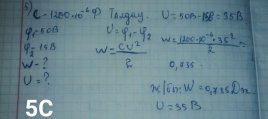 5) C-1200·10⁻⁶ Ф Талдау. U=50В-15В=35В
φ₁-50В U=φ₁-φ₂ W=1200·10⁻⁶·35²/2
φ₂-15В W-CU²/2 0,735
W-?
U=? Ж/бы: W=0,735Дж
U=35В
5C